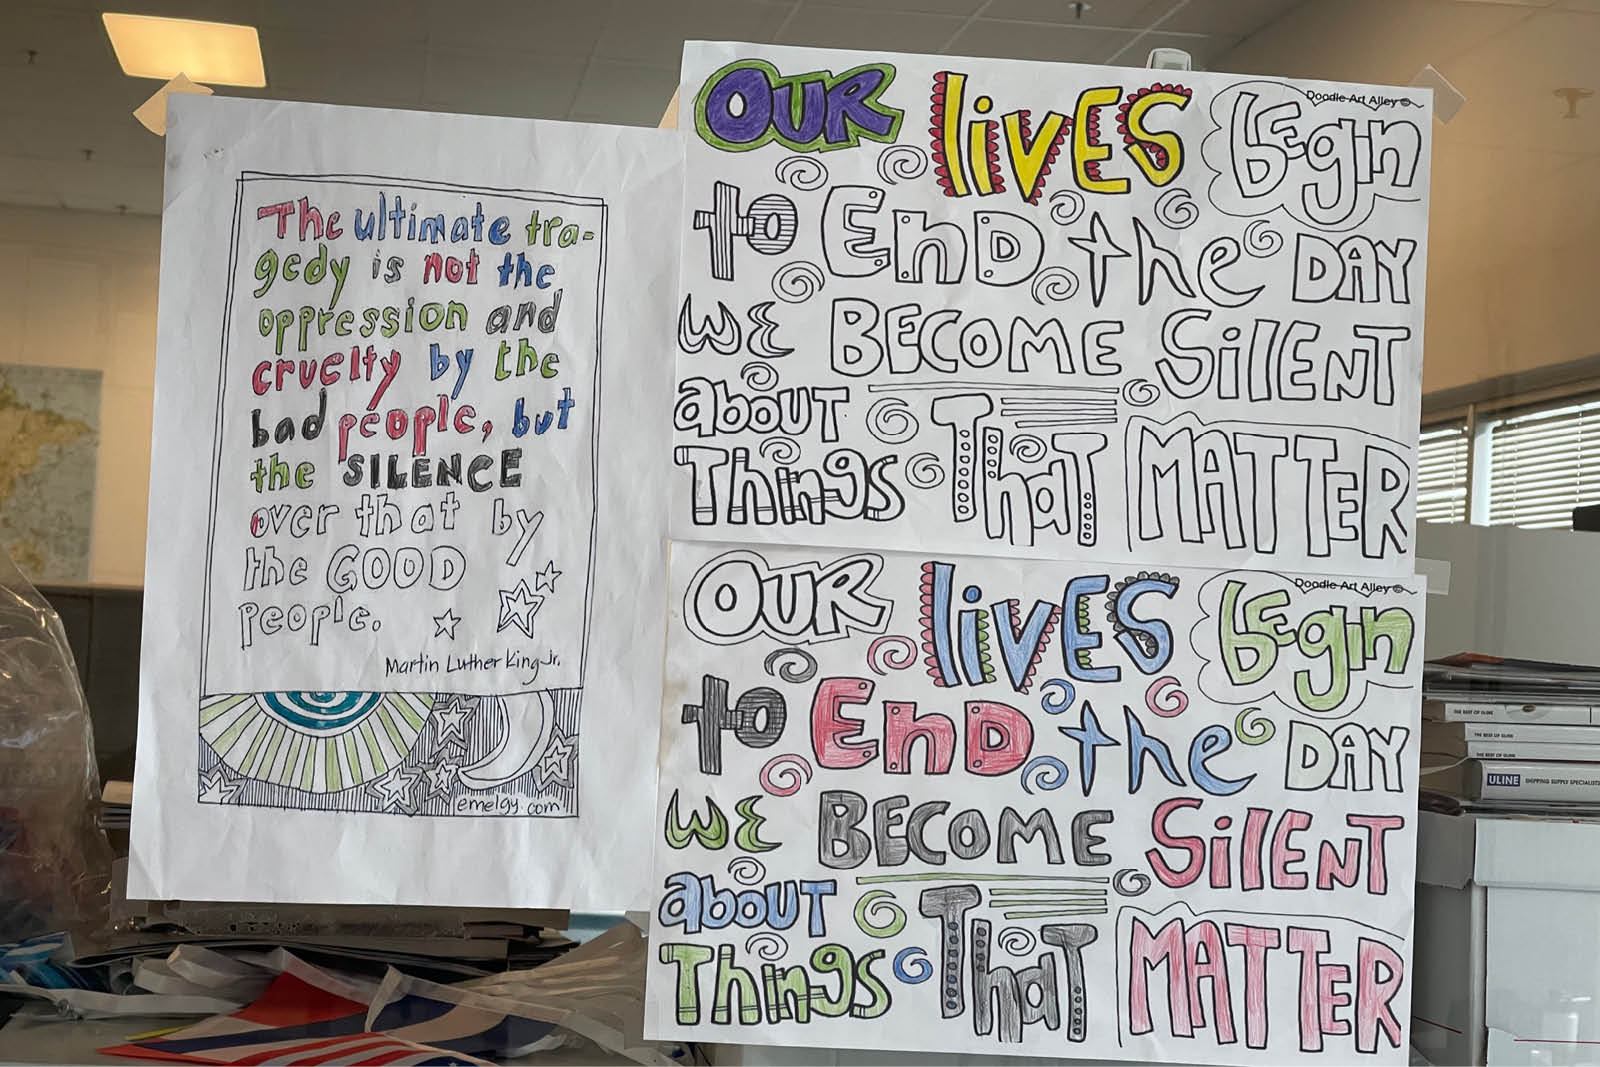 The ultimate tra-
gedy is not the
oppression and
cruelty by the
bad people, but
the SILENCE
over that by
the GOOD
people.
Martin Luther King Jr.
emelgy.com
Doodle Art Alley ©
OUR lives begin
to End the DAY
WE BECOME SilENT
about THAT MATTER
Things
Doodle Art Alley ©
OUR lives begin
to End the DAY
WE BECOME SilENT
about THAT MATTER
Things
THE BEST OF ULINE
THE BEST OF ULINE
THE BEST OF ULINE
ULINE SHIPPING SUPPLY SPECIALISTS